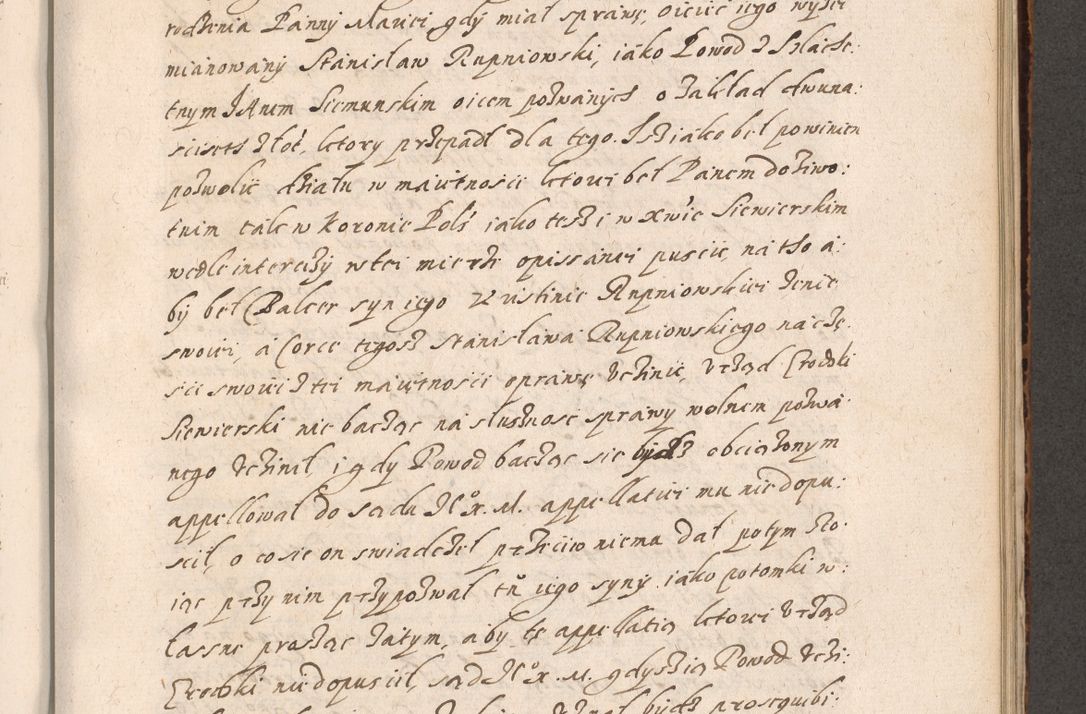 rodzenia Panny Mariei gdy miał sprawę, oiciic iego wyżei
mianowany Stanisław Rupniowski, iako Powod z Szlache:
tnym JAnem Siemunskim oicem pozwanych o zakład dwuna:
sciset złot, ktory przepadł dla tego. Iż iako beł powinien
pozwolic działu w maiętnosci ktorei beł Panem dożiwo:
tnim tak w Koronie Pols iako tesz i w Xwie Siewierskim
wedle interczizy w tei mierze opissanei puscic na tho a:
by beł Balcer syn iego Kristinie Rupniowskiei żenie
swoiei, a Corce tegosz Stanisława Rupniowskiego na czę:
sci swoiei z tei maiętnosci oprawę vczinic, vrząd Grodzki
Siewierski nie bacząc na słusznosc sprawy wolnem pozwa:
nego vczinił i gdy Powod bacząc sie bydz obciążonym
appellował do sądu JE° X. M. appellatiei mu nie dopu:
scił, o co sie on swiadczeł przeciiw niema dał potym sto:
iąc przy nim przypozwał tu iego syny iako potomki w:
łasne prosząc zatym, aby tę appellatią ktorei vrząd
Grodzki nie dopuscił, sąd JE° X. M. gdyszią Powod vczi: